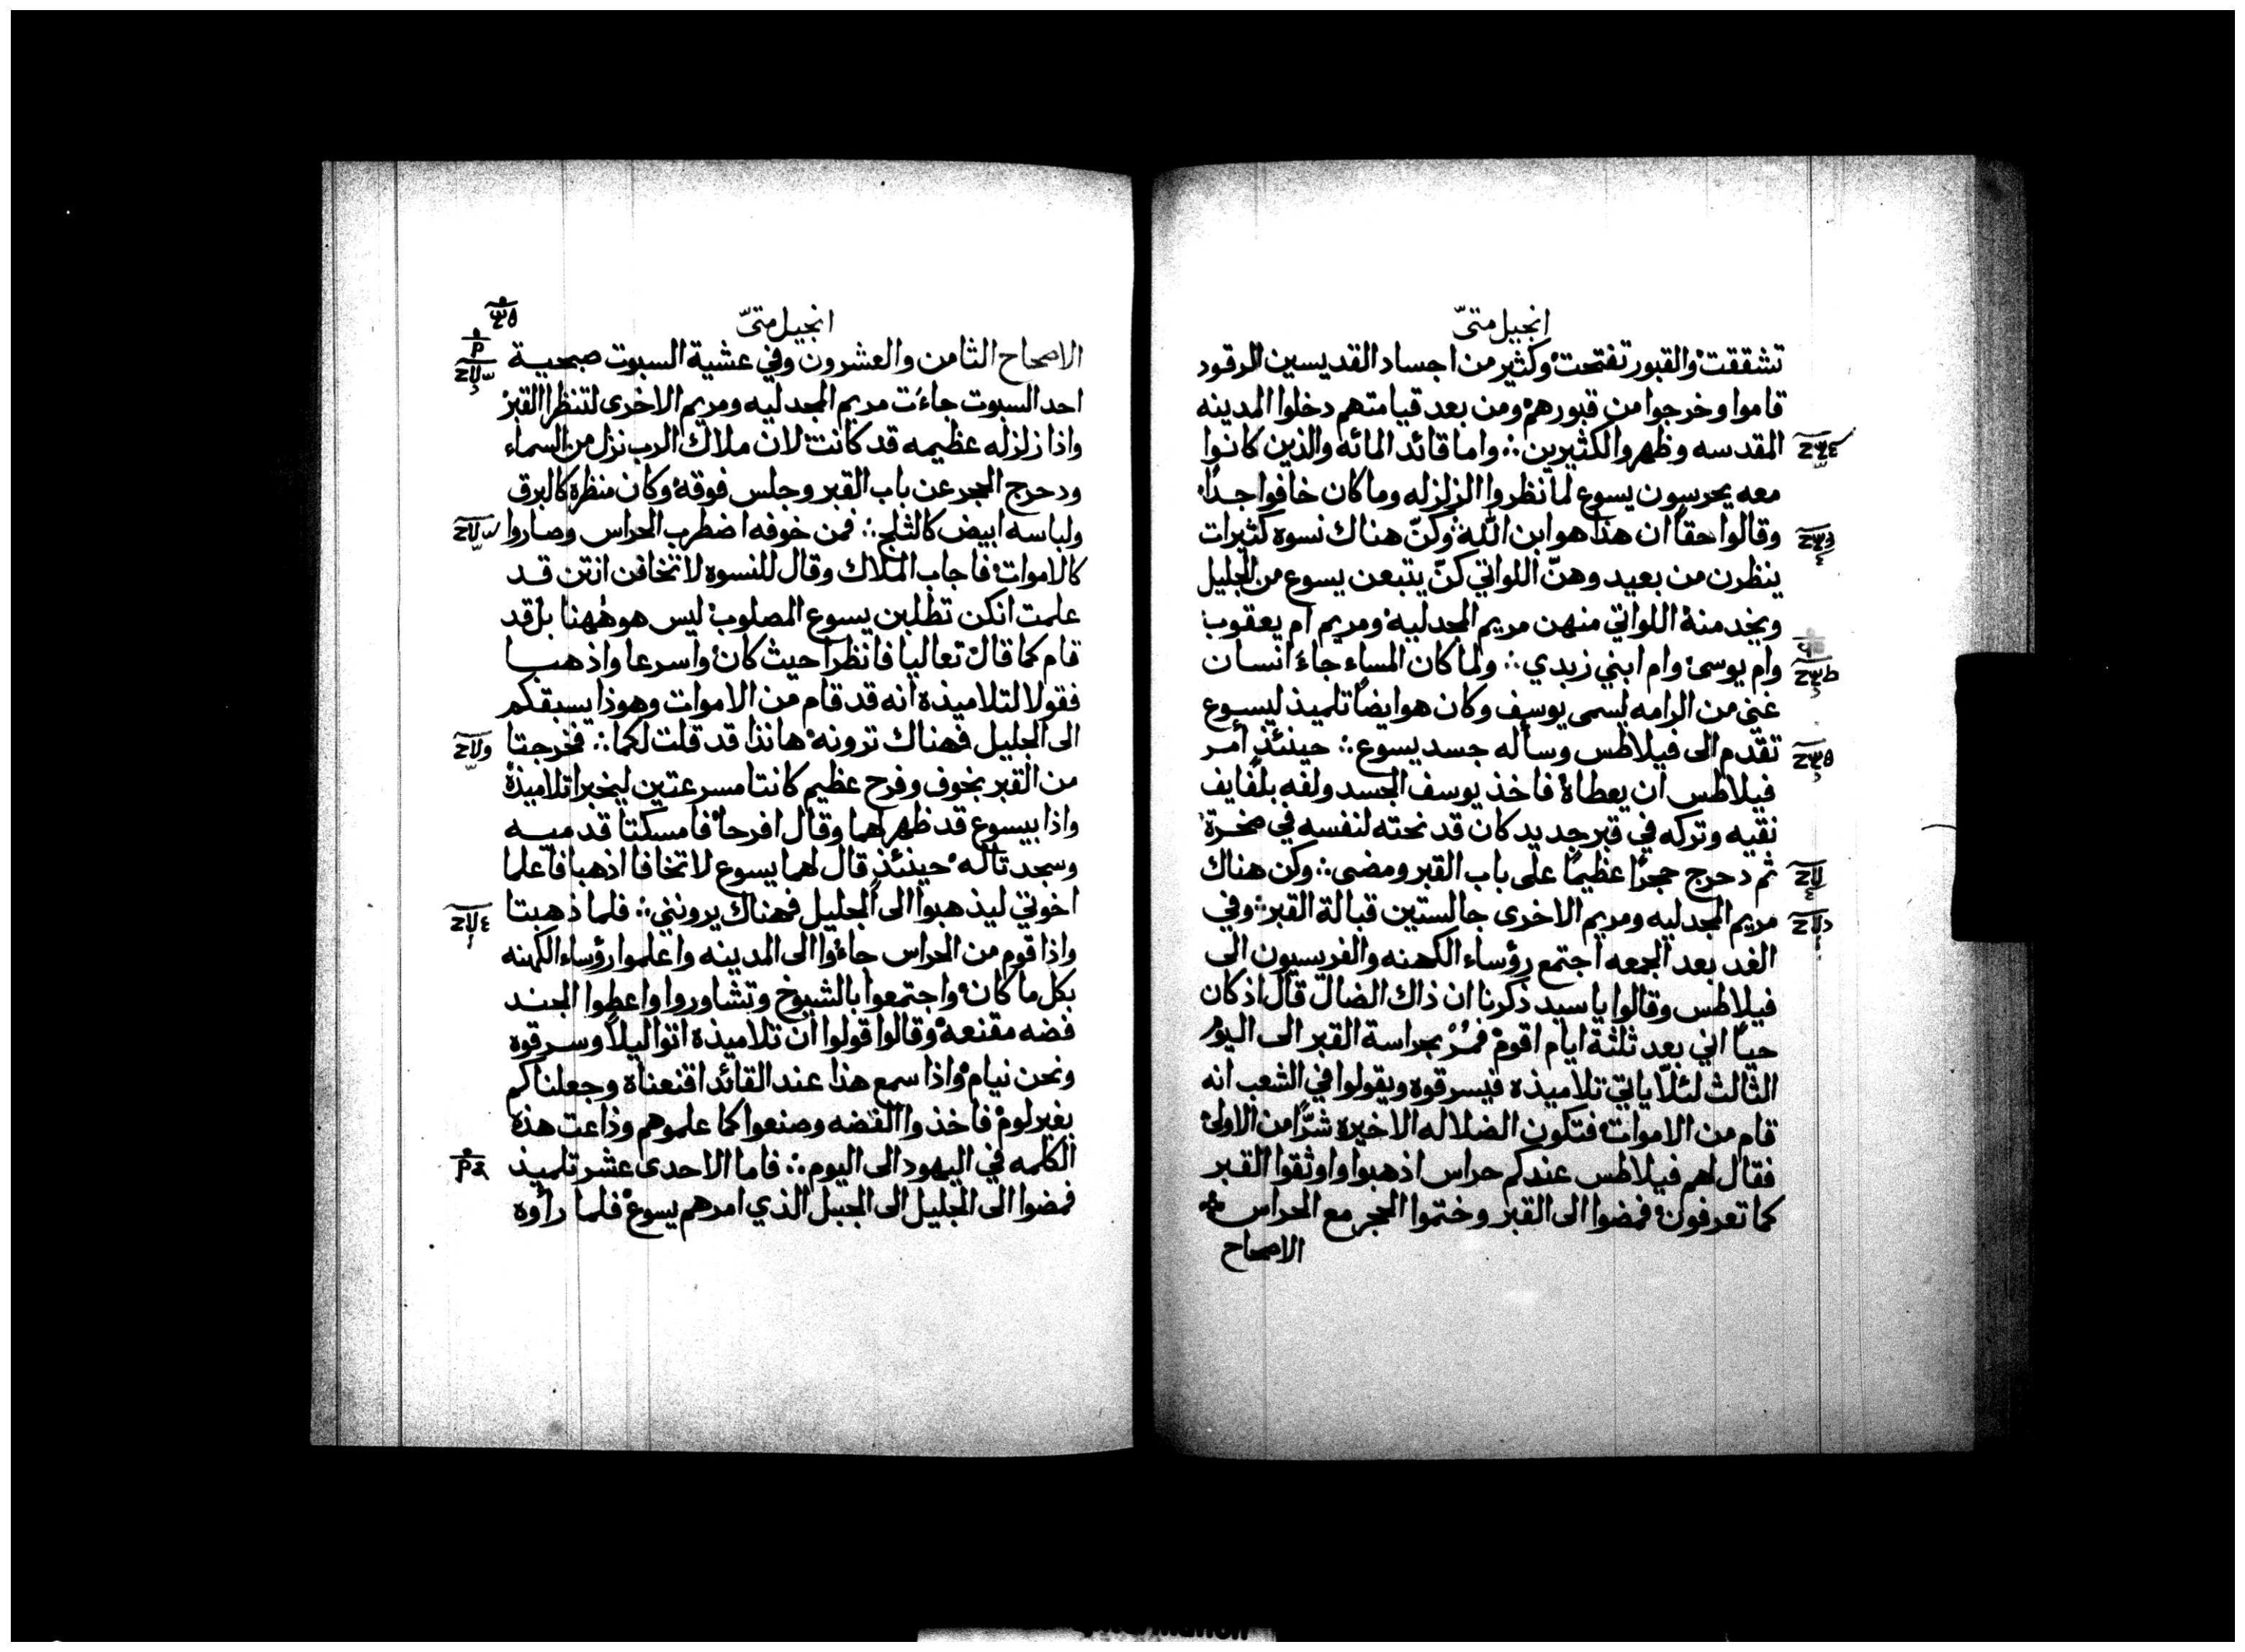 انجيل متىّ
تشققت والقبور تفتحت وكثير من اجساد القديسين الرقود
قاموا وخرجوا من قبورهم ومن بعد قيامتهم دخلوا المدينه
المقدسه وظهروا لكثيرين ∴ واما قائد المائه والذين كانوا
معه يحرسون يسوع لما نظروا الزلزله وما كان خافوا جدًا
وقالوا حقاً ان هذا هو ابن الله وكنّ هناك نسوه كثيرات
ينظرن من بعيد وهنّ اللواتي كنّ يتبعن يسوع من الجليل
ويخدمنه اللواتي منهن مريم المجدليه ومريم ام يعقوب
وام يوسى وام ابني زبدي ∴ ولما كان المساء جاء انسان
غني من الرامه يسمى يوسف وكان هو ايضاً تلميذ ليسوع
تقدم الى فيلاطس وسأله جسد يسوع ∴ حينئذٍ أمر
فيلاطس ان يعطاه فاخذ يوسف الجسد ولفه بلفايف
نقيه وتركه في قبر جديد كان قد نحته لنفسه في صخرة
ثم دحرج حجرًا عظيمًا على باب القبر ومضى ∴ وكن هناك
مريم المجدليه ومريم الاخرى جالستين قبالة القبر ∴ وفي
الغد بعد الجمعه اجتمع رؤساء الكهنه والفريسيون الى
فيلاطس وقالوا يا سيد ذكرنا ان ذاك الضال قال اذ كان
حيًا اني بعد ثلثة ايام اقوم فمُرْ بحراسة القبر الى اليوم
الثالث لئلّا ياتي تلاميذه فيسرقوه ويقولوا في الشعب انه
قام من الاموات فتكون الضلاله الاخيره شرًا من الاولى
فقال لهم فيلاطس عندكم حراس اذهبوا واوثقوا القبر
كما تعرفون فمضوا الى القبر وختموا الحجر مع الحراس
الاصحاح
انجيل متىّ
الاصحاح الثامن والعشرون وفي عشية السبوت صبحية
احد السبوت جاءت مريم المجدليه ومريم الاخرى لتنظرا القبر
واذا زلزله عظيمه قد كانت لان ملاك الرب نزل من السماء
ودحرج الحجر عن باب القبر وجلس فوقه وكان منظره كالبرق
ولباسه ابيض كالثلج ∴ فمن خوفه اضطرب الحراس وصاروا
كالاموات فاجاب الملاك وقال للنسوه لا تخافن انتن قد
علمت انكن تطلبن يسوع المصلوب ليس هو ههنا بل قد
قام كما قال تعاليا فانظرا حيث كان واسرعا واذهبا
فقولا لتلاميذه انه قد قام من الاموات وهوذا يسبقكم
الى الجليل فهناك ترونه هانذا قد قلت لكما ∴ فخرجتا
من القبر بخوف وفرح عظيم كانتا مسرعتين ليخبرا تلاميذه
واذا بيسوع قد ظهر لهما وقال افرحا فامسكتا قدميه
وسجدتا له حينئذٍ قال لهما يسوع لا تخافا اذهبا فاعلما
اخوتي ليذهبوا الى الجليل فهناك يرونني ∴ فلما ذهبتا
واذا قوم من الحراس جاءوا الى المدينه واعلموا رؤساء الكهنه
بكل ما كان واجتمعوا بالشيوخ وتشاوروا واعطوا الجند
فضه مقنعه وقالوا قولوا ان تلاميذه اتوا ليلًا وسرقوه
ونحن نيام واذا سمع هذا عند القائد اقنعناه وجعلناكم
بغير لوم فاخذوا الفضه وصنعوا كما علموهم وذاعت هذه
الكلمه في اليهود الى اليوم ∴ فاما الاحدى عشر تلميذ
فمضوا الى الجليل الى الجبل الذي امرهم يسوع فلما رأوه